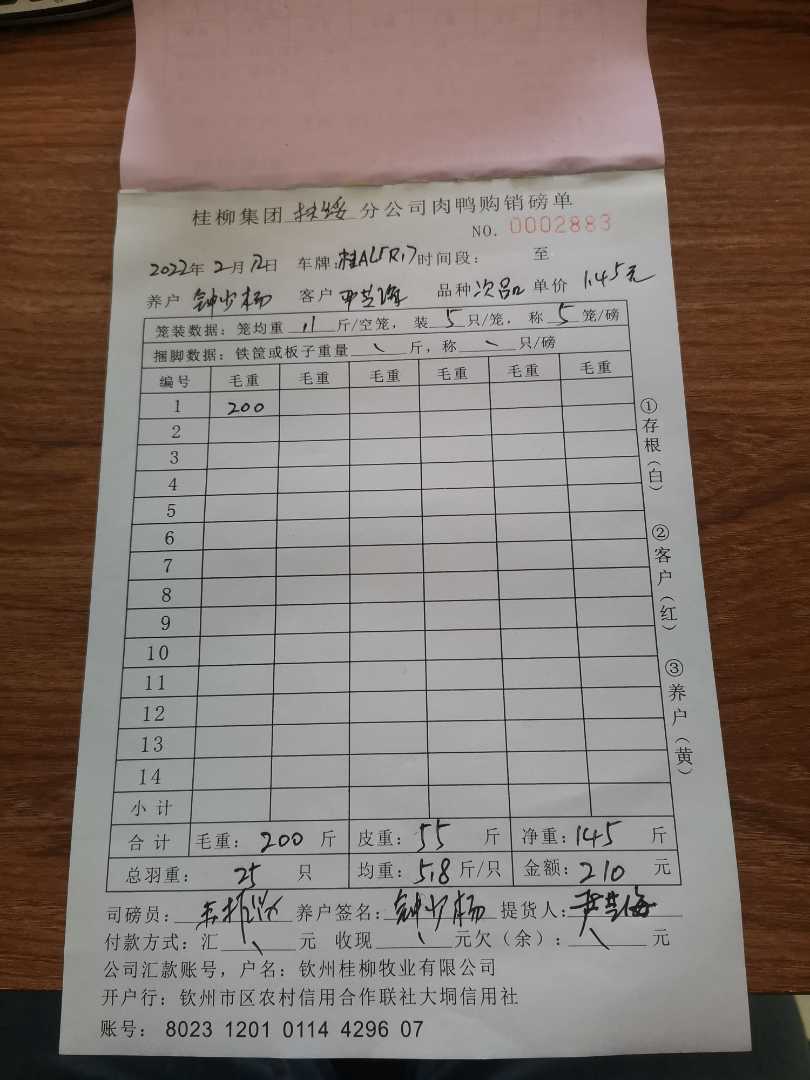 桂柳集团 扶绥 分公司肉鸭购销磅单
NO. 0002883
2022年 2月 12日 车牌: 时间段: 至
养户 钟少杨 客户 尹芝海 品种 次品 单价 1.45元
笼装数据: 笼均重 11 斤/空笼, 装 5 只/笼, 称 5 笼/磅
捆脚数据: 铁筐或板子重量 \ 斤, 称 \ 只/磅
编号 毛重 毛重 毛重 毛重 毛重 毛重
1 200
2
3
4
5
6
7
8
9
10
11
12
13
14
小计
合计 毛重: 200 斤 皮重: 55 斤 净重: 145 斤
总羽重: 25 只 均重: 5.8 斤/只 金额: 210 元
司磅员: 养户签名: 钟少杨 提货人: 尹芝海
付款方式: 汇 \ 元 收现 \ 元欠(余): \ 元
公司汇款账号, 户名: 钦州桂柳牧业有限公司
开户行: 钦州市区农村信用合作联社大垌信用社
账号: 8023 1201 0114 4296 07
①存根(白)
②客户(红)
③养户(黄)